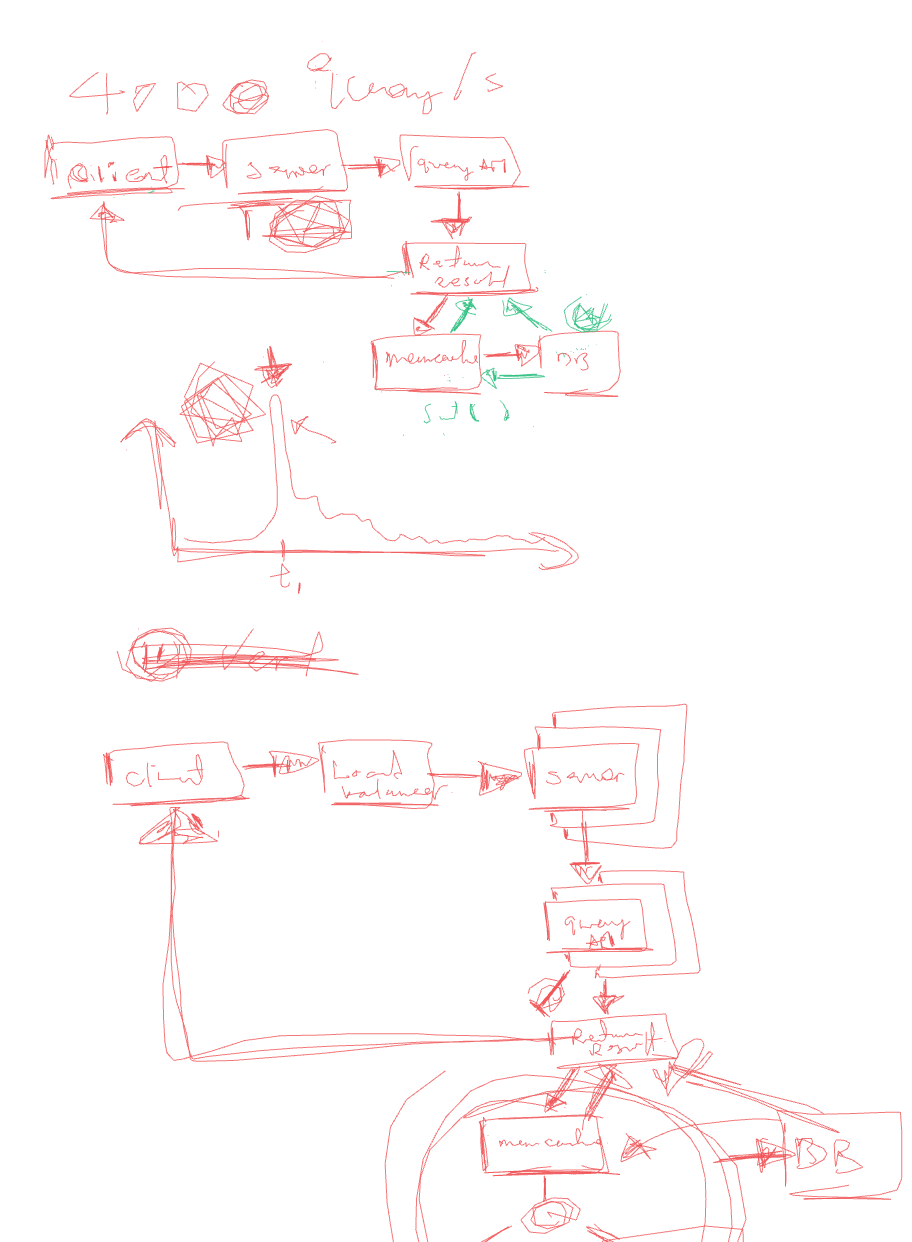 query/s
Client
Server
query API
Return
result
memcache
DB
Set()
t1
Client
Load
balancer
Server
query
API
Return
Result
memcache
DB